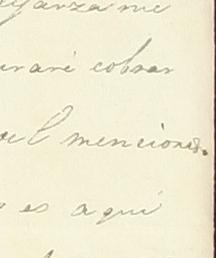 garza me
uraré cobrar
el mencionad.
es aquí